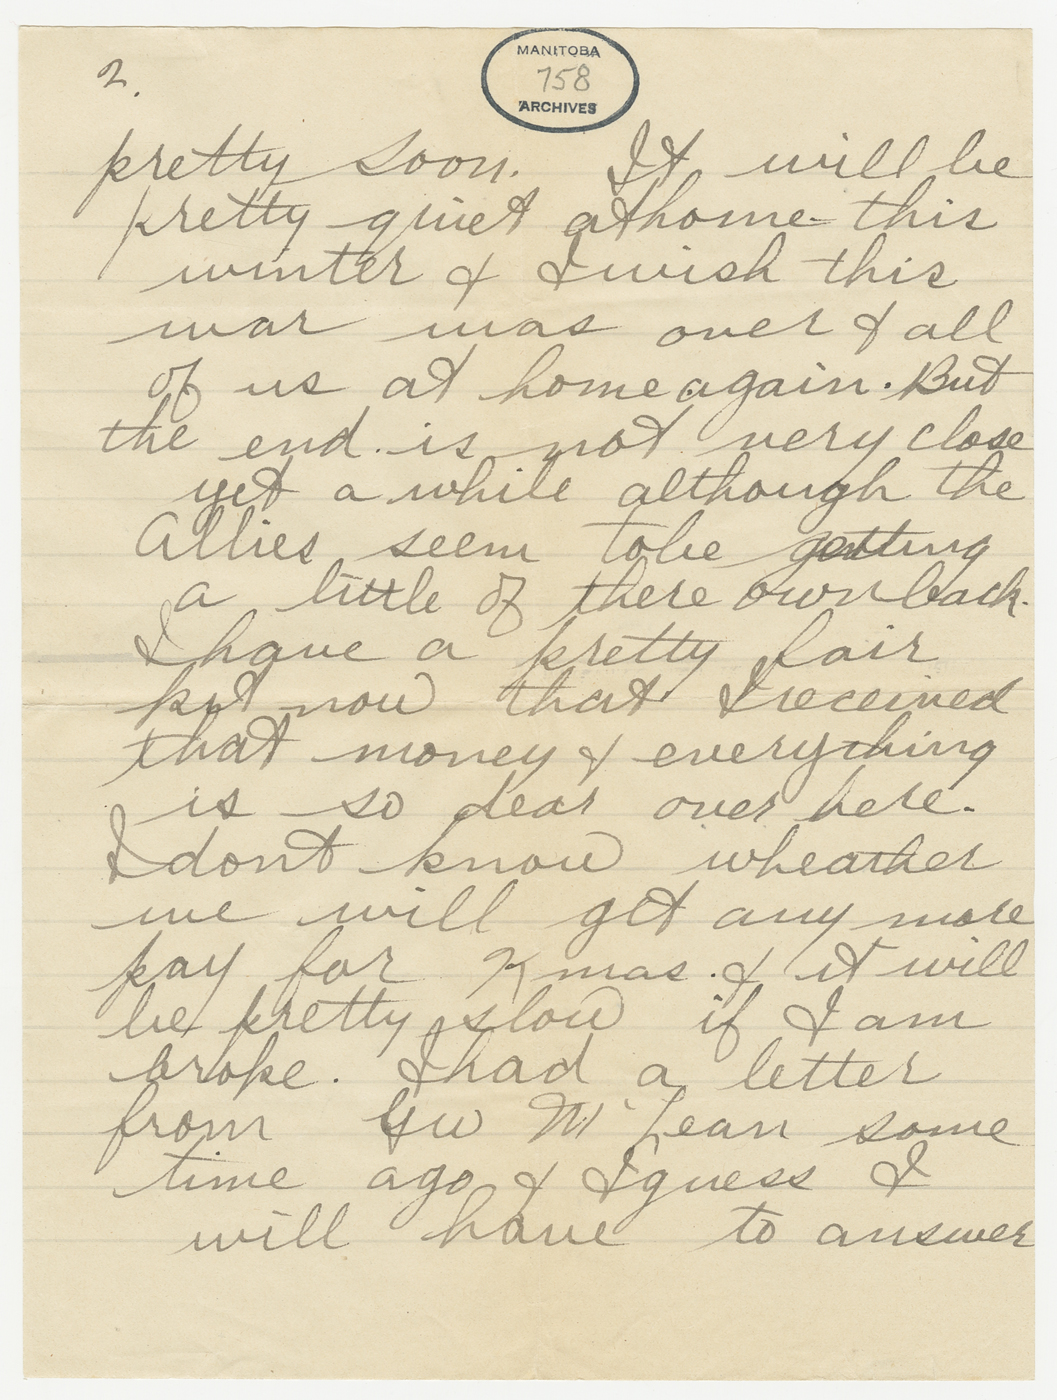 2.
MANITOBA
758
ARCHIVES
pretty soon. It will be
pretty quiet at home this
winter & I wish this
war was over & all
of us at home again. But
the end is not very close
yet a while although the
Allies seem to be getting
a little of there own back.
I have a pretty fair
kit now that I received
that money & everything
is so dear over here.
I dont know wheather
we will get any more
pay for Xmas. & it will
be pretty slow if I am
broke. I had a letter
from McLean some
time ago & I guess I
will have to answer